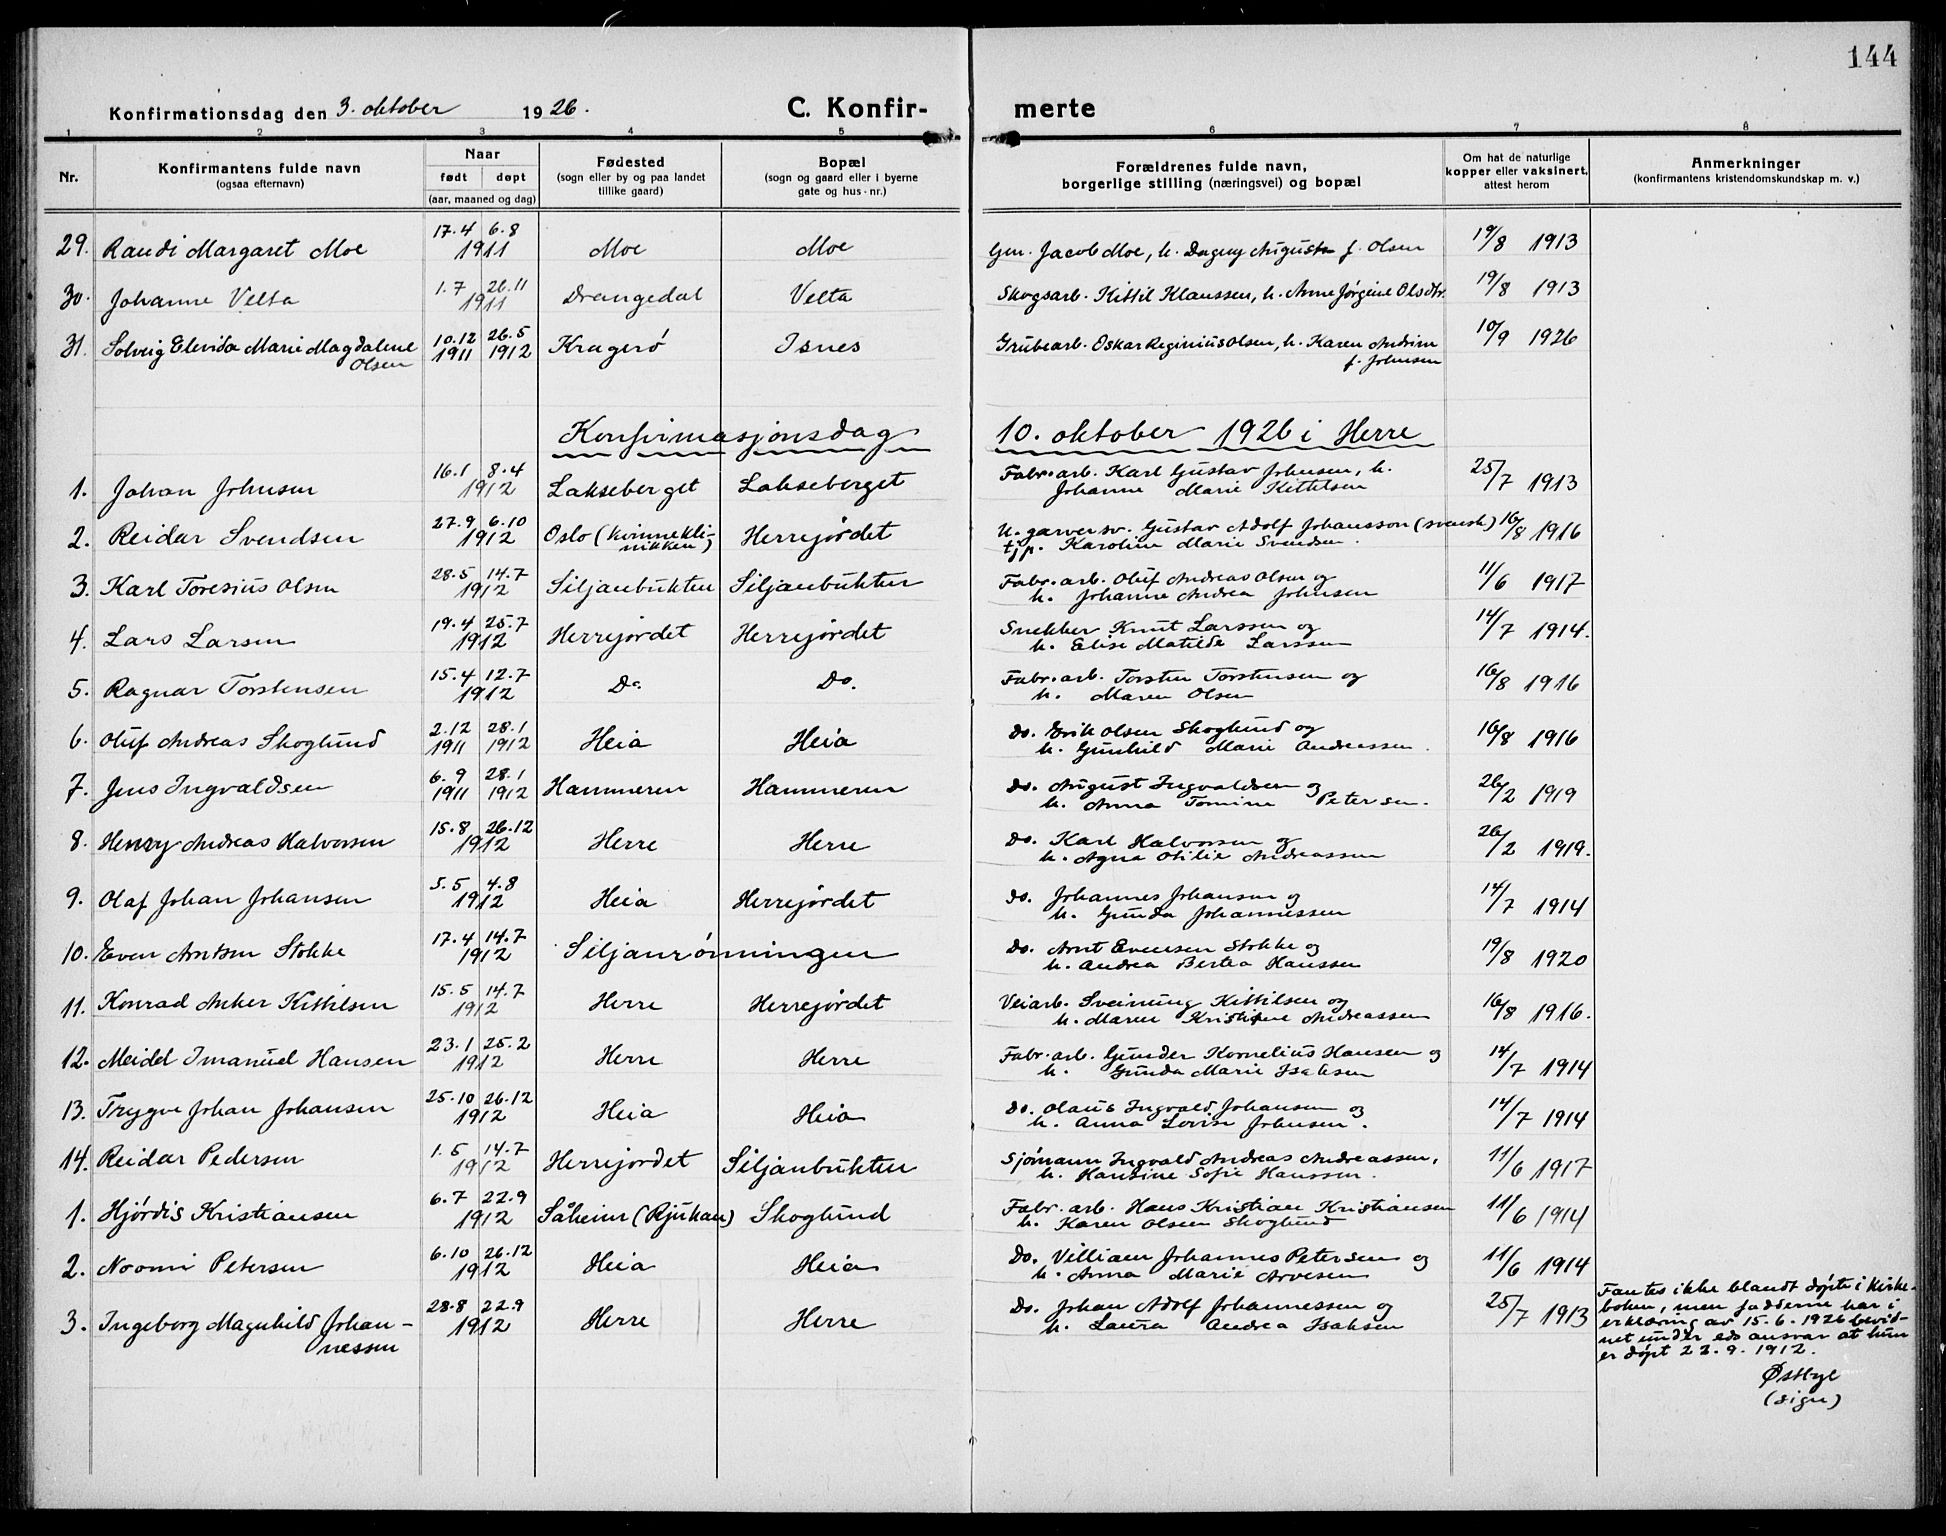 144
Konfirmationsdag den 3. oktober 1926. C. Konfir- merte
1 2 3 4 5 6 7 8
Nr. Konfirmantens fulde navn (ogsaa efternavn) Naar født døpt (aar, maaned og dag) Fødested (sogn eller by og paa landet tillike gaard) Bopæl (sogn og gaard eller i byerne gate og hus-nr.) Forældrenes fulde navn, borgerlige stilling (næringsvei) og bopæl Om hat de naturlige kopper eller vaksinert, attest herom Anmerkninger (konfirmantens kristendomskundskap m. v.)
29. Randi Margaret Moe 17.4 6.8 1911 Moe Moe Gm. Jacob Moe, h. Dagny Augusta f. Olsen 19/8 1913
30. Johanne Velta 1.7 26.11 1911 Drangedal Velta Skogsarb. Kittil Klaussen, h. Anne Jørgine Olsdtr. 19/8 1913
31. Solveig Elevida Marie Magdalene Olsen 10.12 1911 26.5 1912 Kragerø Isnes Grubearb. Oskar Reginius Olsen, h. Karen Andrine f. Johnsen 10/9 1926
Konfirmasjonsdag 10. oktober 1926 i Herre
1. Johan Johnsen 16.1 8.4 1912 Lakseberget Lakseberget Fabr.arb. Karl Gustav Johnsen, h. Johanne Marie Kittilsen 25/7 1913
2. Reidar Svendsen 27.9 6.10 1912 Oslo (kvinneklinikken) Herrejordet U. garversv. Gustav Adolf Johansson (svensk) tjp. Karoline Marie Svendsen. 16/8 1916
3. Karl Toresius Olsen 28.5 14.7 1912 Siljanbukten Siljanbukten Fabr.arb. Oluf Andreas Olsen og h. Johanne Andrea Johnsen 11/6 1917
4. Lars Larsen 19.4 25.7 1912 Herrejordet Herrejordet Snekker Knut Larssen og h. Elise Matilde Larssen 14/7 1914.
5. Ragnar Torstensen 15.4 12.7 1912 Do. Do. Fabr.arb. Torsten Torstensen og h. Maren Olsen 16/8 1916
6. Oluf Andreas Skoglund 2.12 1911 28.1 1912 Heia Heia Do. Erik Olsen Skoglund og h. Gunhild Marie Andreassen. 16/8 1916
7. Jens Ingvaldsen 6.9 1911 28.1 1912 Hammeren Hammeren Do. August Ingvaldsen og h. Anna Tomine Petersen. 26/2 1919
8. Henry Andreas Halvorsen 15.8 26.12 1912 Herre Herre Do. Karl Halvorsen og h. Agna Otilie Andreassen 26/2 1919.
9. Olaf Johan Johansen 5.5 4.8 1912 Heia Herrejordet Do. Johannes Johansen og h. Gunda Johannessen 14/7 1914
10. Even Arntsen Stokke 17.4 14.7 1912 Siljanrønningen Do. Arnt Evensen Stokke og h. Andrea Bertea Hanssen 19/8 1920
11. Konrad Anker Kittilsen 15.5 14.7 1912 Herre Herrejordet Veiarb. Sveinung Kittilsen og h. Maren Kristine Andreassen 16/8 1916.
12. Meidel Imanuel Hansen 23.1 25.2 1912 Herre Herre Fabr.arb. Gunder Kornelius Hansen og h. Gunda Marie Isaksen 14/7 1914
13. Trygve Johan Johansen 25.10 26.12 1912 Heia Heia Do. Olaus Ingvald Johansen og h. Anna Lovise Johnsen. 14/7 1914
14. Reidar Pedersen 1.5 14.7 1912 Herrejordet Siljanbukten Sjømann Ingvald Andreas Andreassen, h. Hansine Sofie Hanssen. 11/6 1917
1. Hjørdis Kristiansen 6.7 22.9 1912 Såheim (Rjukan) Skoglund Fabr.arb. Hans Kristian Kristiansen h. Karen Olsen Skoglund 11/6 1914
2. Noomi Petersen 6.10 26.12 1912 Heia Heia Do. Villiam Johannes Petersen og h. Anna Marie Arvesen 11/6 1914
3. Ingeborg Magnhild Johannessen 28.8 22.9 1912 Herre Herre Do. Johan Adolf Johannessen og h. Laura Andrea Isaksen 25/7 1913
Fantes ikke blandt døpte i kirke-
boken, men fadderne har i
erklæring av 15.6.1926 bevid-
net under eds ansvar at hun
er døpt 22.9.1912.
Østbye
(sign)